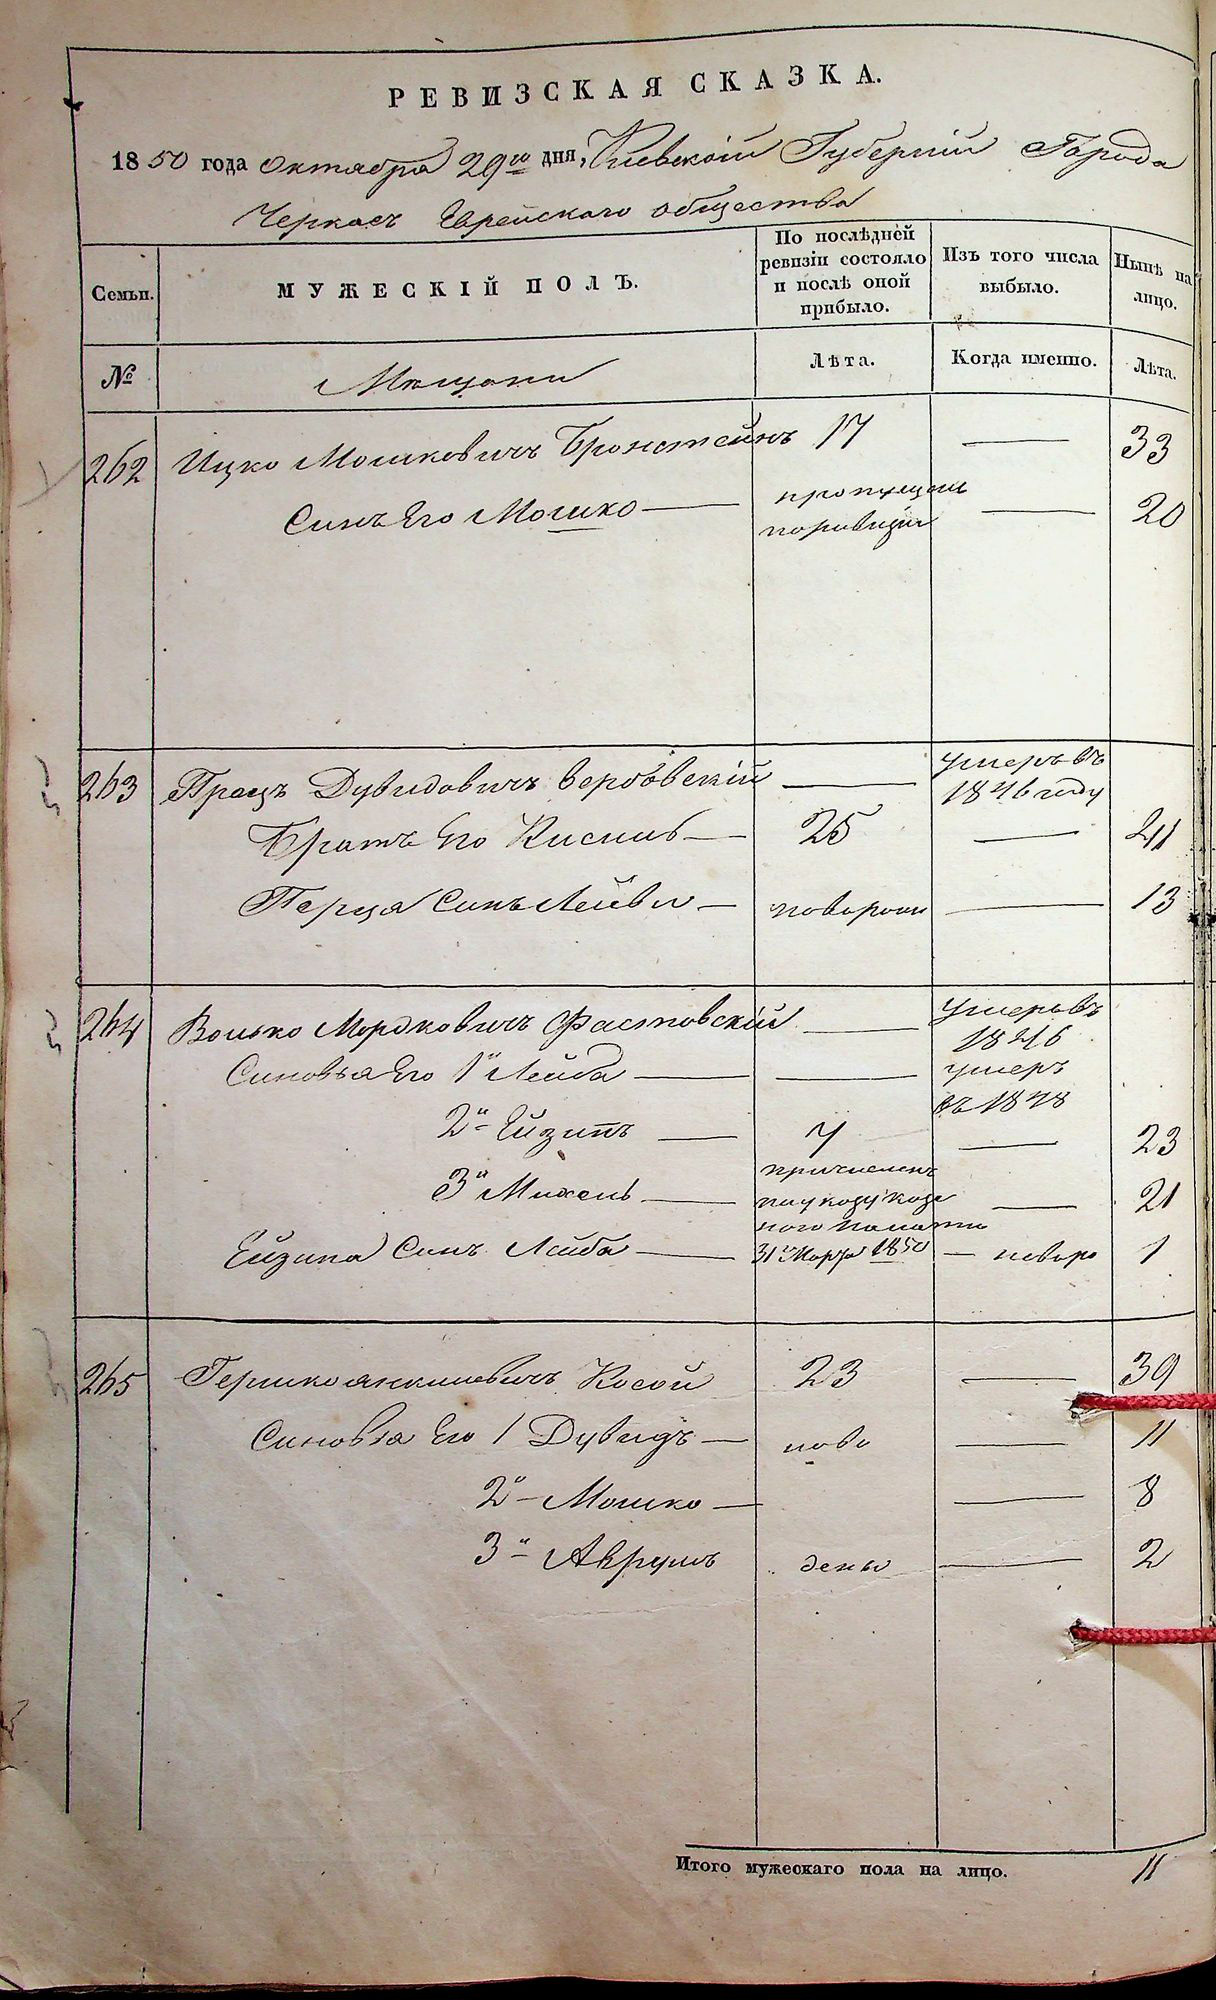 РЕВИЗСКАЯ СКАЗКА.
1850 года Октября 29го дня, Киевской Губернии Города
Черкасъ Еврейского общества
Семьи.
МУЖЕСКІЙ ПОЛЪ.
По послѣдней ревизіи состояло и послѣ оной прибыло.
Изъ того числа выбыло.
Нынѣ на лицо.
№
Мещани
Лѣта.
Когда именно.
Лѣта.
262 Ицко Мошковичъ Бронстейнъ 17 — 33
Синъ Его Мошко — пропущен — 20
по ревизии
263 Перецъ Дувидовичъ Вербовский — умеръ въ
1846 году
Братъ Его Кисиль — 25 — 41
Перца Синъ Лейви — новорожд — 13
264 Волько Мордковичъ Фастовский — умеръ въ
1846
Синовья Его 1й Лейба — — умеръ
въ 1848
2й Ейзипъ — 7 — 23
3й Михель — причислен 21
по указу Казе
ного Палати
Ейзипа Синъ Лейба — 31 Марта 1850 — новоро 1
265 Гершко Янкилевичъ Косой 23 — 39
Синовья Его 1 Дувидъ — ново — 11
2й — Мошко — — 8
3й — Аврумъ дены — 2
Итого мужескаго пола на лицо. 11